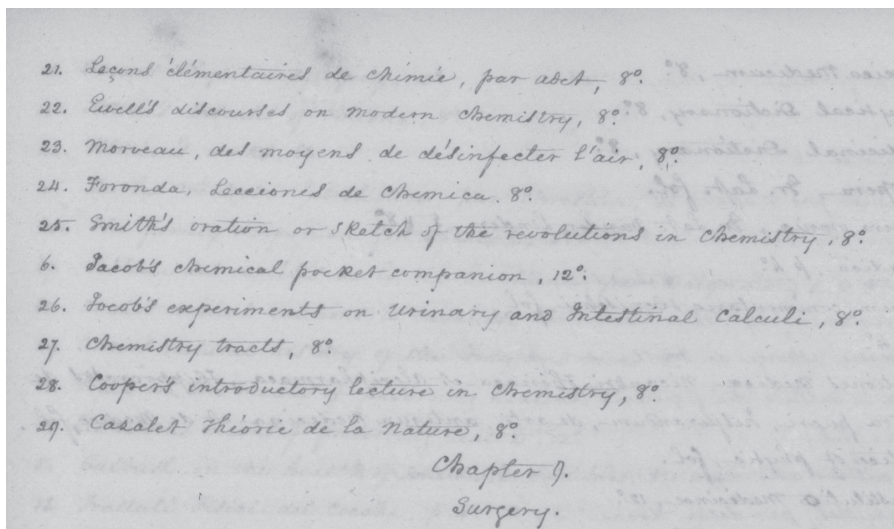 21. Leçons élémentaires de chimie, par adet, 8º.
22. Ewell's discourses on modern chemistry, 8º.
23. Morveau, des moyens de désinfecter l'air, 8º.
24. Foronda, Lecciones de chemica. 8º.
25. Smith's oration or sketch of the revolutions in chemistry, 8º.
6. Jacob's chemical pocket companion, 12º.
26. Jacob's experiments on Urinary and Intestinal Calculi, 8º.
27. Chemistry tracts, 8º.
28. Cooper's introductory lecture in Chemistry, 8º.
29. Cazalet Théorie de la Nature, 8º.
Chapter 9.
Surgery.